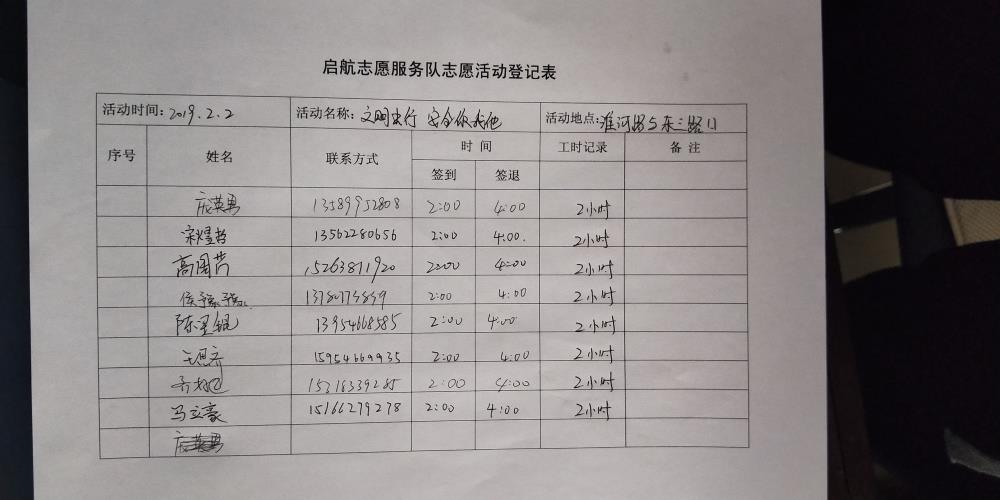 启航志愿服务队志愿活动登记表
活动时间: 2019.2.2 活动名称: 文明出行 安全你我他 活动地点: 淮河路与东三路口
序号 姓名 联系方式 时间 工时记录 备注
签到 签退
庞英男 13589952808 2:00 4:00 2小时
宋煜哲 13562280656 2:00 4:00. 2小时
高国芹 15263811920 2:00 4:00 2小时
侯 2:00 4:00 2小时
陈 13954668585 2:00 4:00 2小时
王思齐 15954669935 2:00 4:00 2小时
齐 2:00 4:00 2小时
马立豪 15166279278 2:00 4:00 2小时